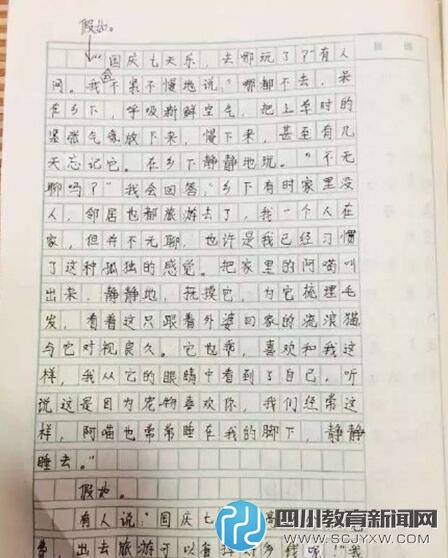 假如。
“国庆七天乐，去哪玩了？”有人
问。我会不紧不慢地说，“哪都不去，呆
在乡下，呼吸新鲜空气，把上学时的
紧张气氛放下来，慢下来，甚至有几
天忘记它。在乡下静静地玩。”“不无
聊吗？”我会回答，“乡下有时家里没
人，邻居也都旅游去了，我一个人在
家，但并不无聊，也许是我已经习惯
了这种孤独的感觉。把家里的阿喵叫
出来，静静地，抚摸它，为它梳理毛
发，看着这只跟着外婆回家的流浪猫
与它对视良久。它也乖，喜欢和我这
样，我从它的眼睛中看到了自己，听
说这是因为宠物喜欢你，我们经常这
样，阿喵也常常睡在我的脚下，静静
睡去。”
假如。
有人说，“国庆七
费，出去旅游可以省掉好多钱呢！”我
四川教育新闻网
WWW.SCJYXW.COM